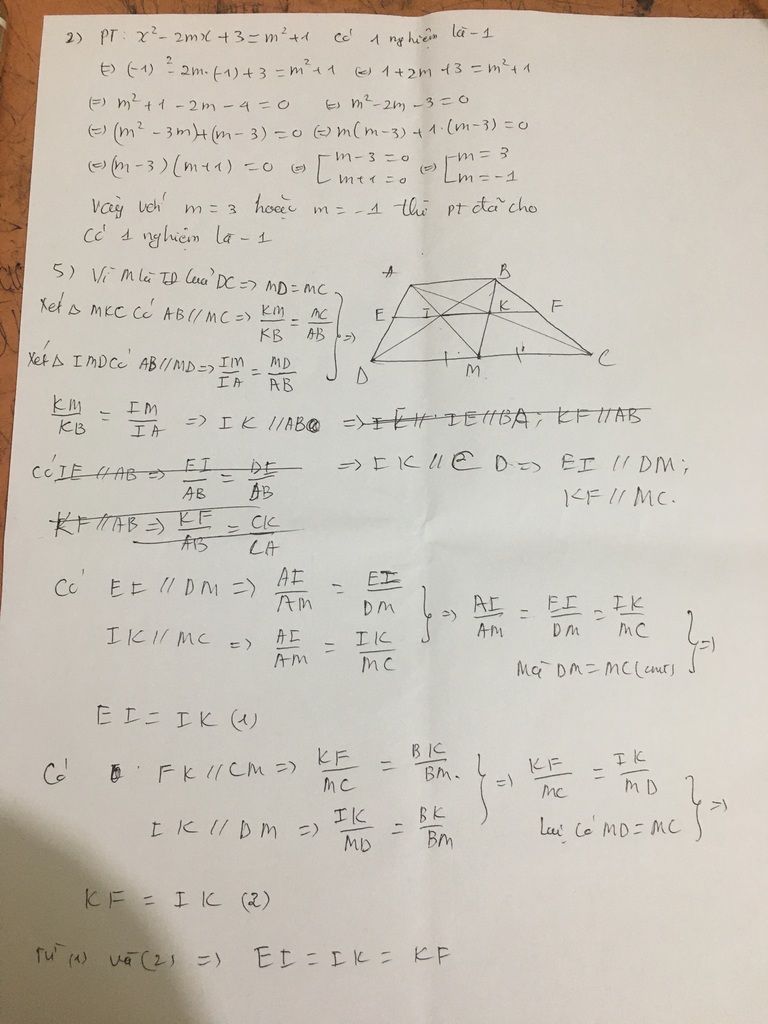 2) PT: x² - 2mx + 3 = m² + 1 có 1 nghiệm là -1
⇔ (-1)² - 2m.(-1) + 3 = m² + 1 ⇔ 1 + 2m + 3 = m² + 1
⇔ m² + 1 - 2m - 4 = 0 ⇔ m² - 2m - 3 = 0
⇔ (m² - 3m) + (m - 3) = 0 ⇔ m(m - 3) + 1.(m - 3) = 0
⇔ (m - 3)(m + 1) = 0 ⇔ [m - 3 = 0 ; m + 1 = 0 ⇔ [m = 3 ; m = -1
Vậy với m = 3 hoặc m = -1 thì PT đã cho
có 1 nghiệm là -1
5) Vì M là TĐ của DC => MD = MC
Xét Δ MKC có AB // MC => KM/KB = MC/AB
Xét Δ IMD có AB // MD => IM/IA = MD/AB
} =>
A B
E I K F
D M C
KM/KB = IM/IA => IK // AB => IK // IE // BA; KF // AB
Có IE // AB => EI/AB = DE/DB => IK // CD => EI // DM;
KF // MC.
KF // AB => KF/AB = CK/CA
Có EI // DM => AI/AM = EI/DM
IK // MC => AI/AM = IK/MC
} => AI/AM = EI/DM = IK/MC
Mà DM = MC (cmt) } =>
EI = IK (1)
Có FK // CM => KF/MC = BK/BM.
IK // DM => IK/MD = BK/BM
} => KF/MC = IK/MD
Lại có MD = MC } =>
KF = IK (2)
Từ (1) và (2) => EI = IK = KF